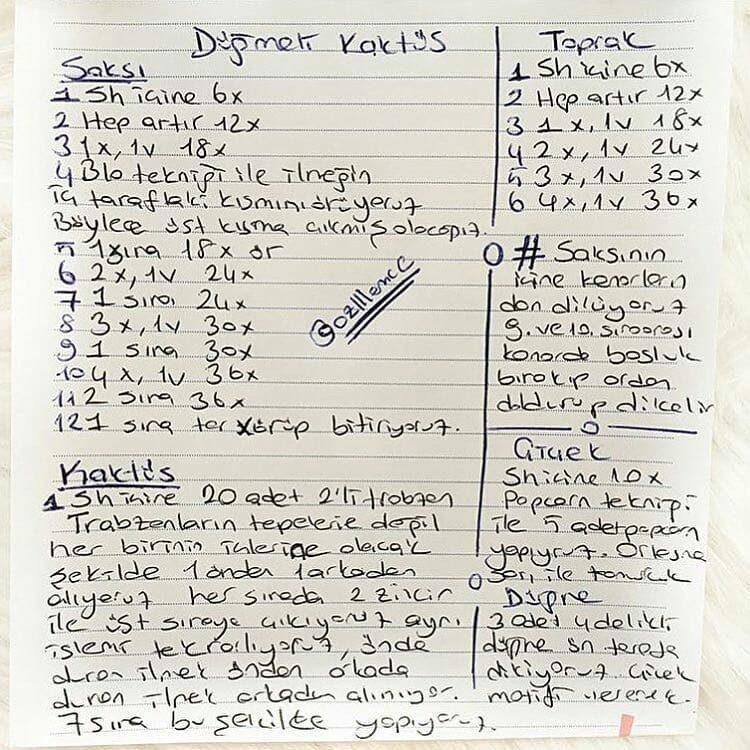 Düğmeli Kaktüs
Saksı
1 Sh içine 6x
2 Hep artır 12x
3 1x, 1v 18x
4 Blo tekniği ile ilmeğin
iç taraftaki kısmını örüyoruz
Böylece üst kısma çıkmış olacağız.
5 1 sıra 18x ör
6 2x, 1v 24x
7 1 sıra 24x
8 3x, 1v 30x
9 1 sıra 30x
10 4x, 1v 36x
11 2 sıra 36x
12 1 sıra ters örüp bitiriyoruz.
@ozlllence
Kaktüs
1 Sh içine 20 adet 2'li trabzan
Trabzanların tepelerie değil
her birinin içlerine olacak
şekilde 1 önden 1 arkadan
alıyoruz her sırada 2 zincir
ile üst sıraya çıkıyoruz aynı
işlemi tekrarlıyoruz, önde
duran ilmek önden arkada
duran ilmek arkadan alınıyor.
7 sıra bu şekilde yapıyoruz.
Toprak
1 Sh içine 6x
2 Hep artır 12x
3 1x, 1v 18x
4 2x, 1v 24x
5 3x, 1v 30x
6 4x, 1v 36x
# Saksının
içine kenarların
dan dikiyoruz
9. ve 10. sıra arası
konarak boşluk
bırakıp ordan
doldurup dikelir
Çiçek
Sh içine 10x
Popcorn tekniği
ile 5 adet popcorn
yapıyoruz. Ortasına
sarı ile tomurcuk
Düğme
3 adet 4 delikli
düğme ön tarafa
dikiyoruz. Çiçek
motifi vererek.